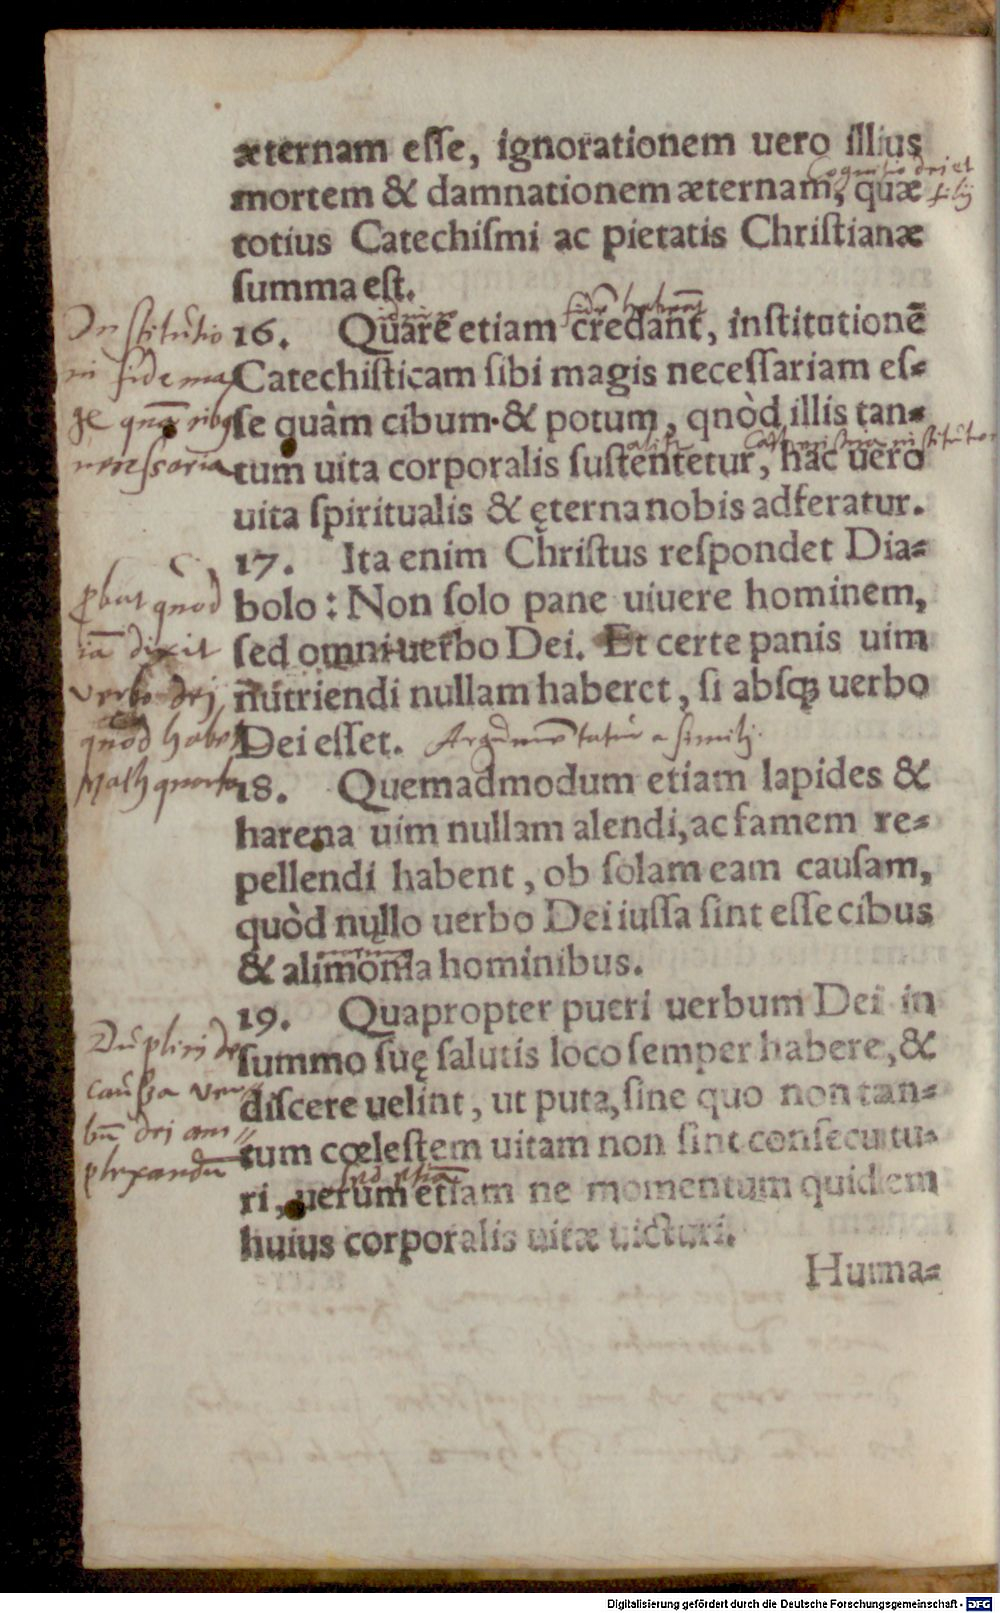 æternam eſſe, ignorationem uero illius
Cognitio dei et
filij
mortem & damnationem æternam, quæ
totius Catechiſmi ac pietatis Chriſtianæ
ſumma eſt.
Inſtitutio
in fide
necessaria
16. Quare etiam credant, inſtitutionẽ
Catechiſticam ſibi magis neceſſariam eſ⸗
ſe quàm cibum & potum, qnòd illis tan⸗
tum uita corporalis ſuſtentetur, hac uero
uita ſpiritualis & ęterna nobis adferatur.
17. Ita enim Chriſtus reſpondet Dia⸗
bolo: Non ſolo pane uiuere hominem,
ſed omni uerbo Dei. Et certe panis uim
nutriendi nullam haberet, ſi absqꝫ uerbo
Dei eſſet.
quod
dixit
verbo dei
quod habet
Math quarto
a simili
18. Quemadmodum etiam lapides &
harena uim nullam alendi, ac famem re⸗
pellendi habent, ob ſolam eam cauſam,
quòd nullo uerbo Dei iuſſa ſint eſſe cibus
& alimonia hominibus.
19. Quapropter pueri uerbum Dei in
ſummo ſuę ſalutis loco ſemper habere, &
diſcere uelint, ut puta, ſine quo non tan⸗
tum cœleſtem uitam non ſint conſecutu⸗
ri, uerum etiam ne momentum quidem
huius corporalis uitæ uicturi.
Duplici de
caussa ver⸗
bũ dei am⸗
plexandũ
sed etiã
Huma⸗
Digitalisierung gefördert durch die Deutsche Forschungsgemeinschaft - DFG